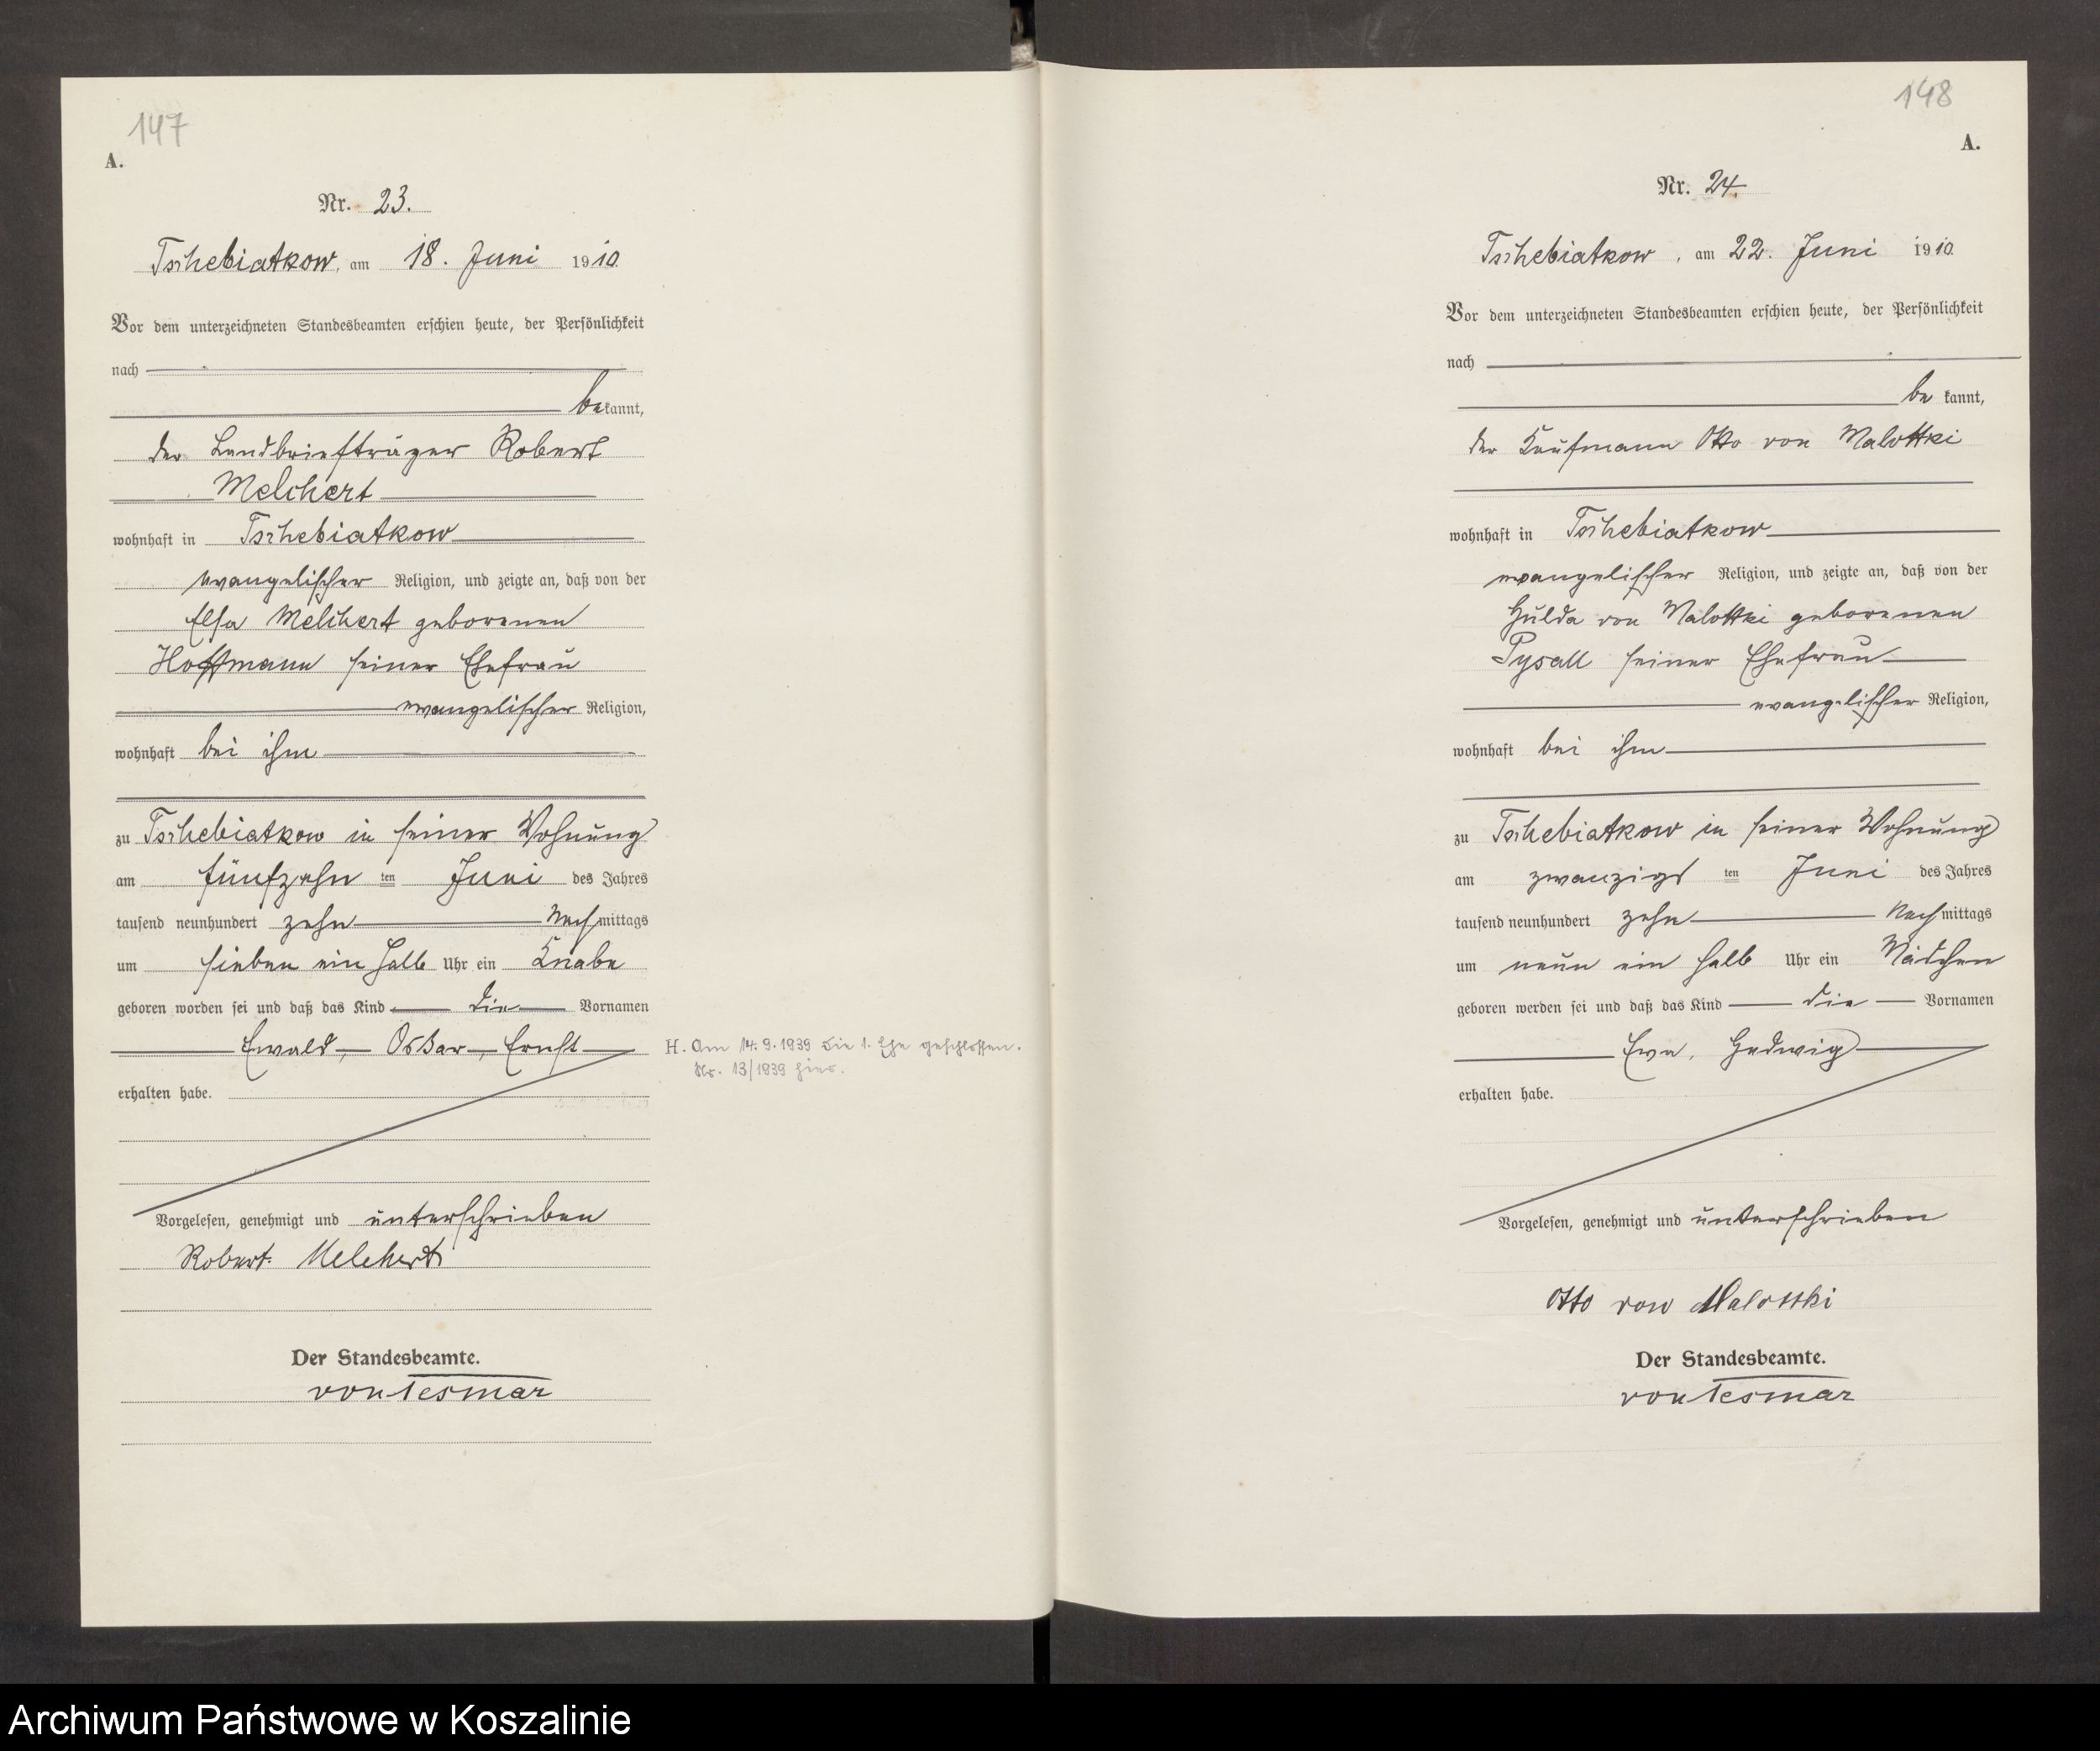 147
A.
Nr. 23.
Tschebiatkow, am 18. Juni 1910
Vor dem unterzeichneten Standesbeamten erschien heute, der Persönlichkeit
nach
bekannt,
der Landbriefträger Robert
Melchert
wohnhaft in Tschebiatkow
evangelischer Religion, und zeigte an, daß von der
Elsa Melchert geborenen
Hoffmann seiner Ehefrau
evangelischer Religion,
wohnhaft bei ihm
zu Tschebiatkow in seiner Wohnung
am fünfzehn ten Juni des Jahres
tausend neunhundert zehn Nachmittags
um sieben ein halb Uhr ein Knabe
geboren worden sei und daß das Kind die Vornamen
Ewald, Oskar, Ernst
erhalten habe.
H. Am 14.9.1939 die 1. Ehe geschlossen.
Nr. 13/1939 hier.
Vorgelesen, genehmigt und unterschrieben
Robert Melchert
Der Standesbeamte.
von Tesmar
148
A.
Nr. 24.
Tschebiatkow, am 22. Juni 1910
Vor dem unterzeichneten Standesbeamten erschien heute, der Persönlichkeit
nach
bekannt,
der Kaufmann Otto von Malottki
wohnhaft in Tschebiatkow
evangelischer Religion, und zeigte an, daß von der
Hulda von Malottki geborenen
Pysall seiner Ehefrau
evangelischer Religion,
wohnhaft bei ihm
zu Tschebiatkow in seiner Wohnung
am zwanzigs ten Juni des Jahres
tausend neunhundert zehn Nachmittags
um neun ein halb Uhr ein Mädchen
geboren werden sei und daß das Kind die Vornamen
Ewa, Hedwig
erhalten habe.
Vorgelesen, genehmigt und unterschrieben
Otto von Malottki
Der Standesbeamte.
von Tesmar
Archiwum Państwowe w Koszalinie